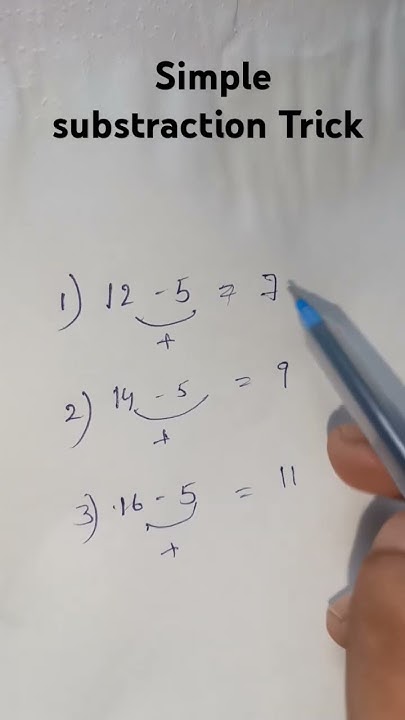 Simple
substraction Trick
1) 12 - 5 = 7
+
2) 14 - 5 = 9
+
3) 16 - 5 = 11
+